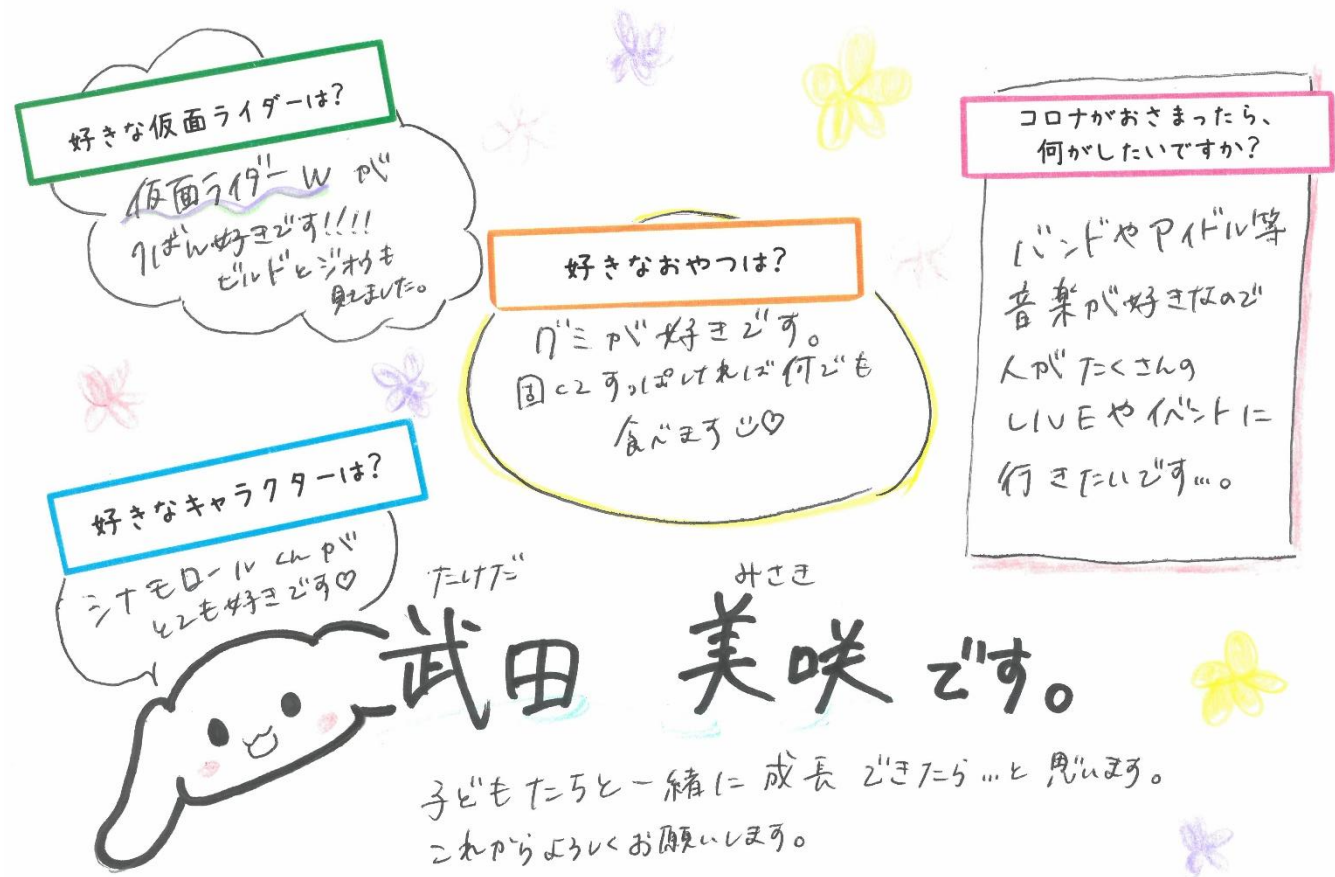 好きな仮面ライダーは?
仮面ライダーWが
1ばん好きです!!!!
ビルドとジオウも
見ました。
好きなおやつは?
グミが好きです。
固くてすっぱければ何でも
食べます
コロナがおさまったら、
何がしたいですか?
バンドやアイドル等
音楽が好きなので
人がたくさんの
LIVEやイベントに
行きたいです…。
好きなキャラクターは?
シナモロールくんが
とても好きです♡
たけだ みさき
武田 美咲です。
子どもたちと一緒に成長できたら…と思います。
これからよろしくお願いします。